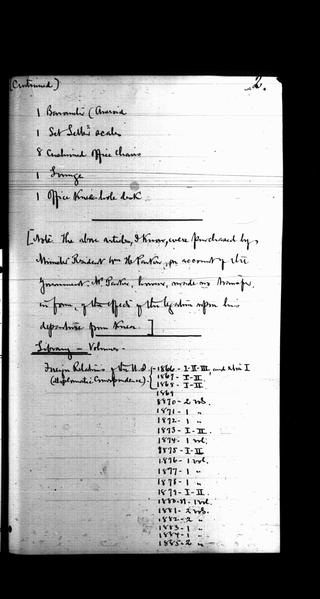 (Continued) 2.
1 Barometer (Aneroid
1 Set Letter scales
8 Cushioned office chairs
1 Lounge
1 Office Knee-hole desk
[Note. The above articles, I know, were purchased by
Minister Resident Wm H. Parker, on account of the
Government. Mr Parker, however, made no transfer,
in form, of the effects of the legation upon his
departure from Korea.]
Library - Volumes.
Foreign Relations of the U.S. 1866 - I-II-III, and also I
(Diplomatic Correspondence). 1867 - I-II.
1868 - I-II.
1869
1870 - 2 vol.
1871 - 1 "
1872 - 1 "
1873 - I-II.
1874 - 1 vol.
1875 - I-II
1876 - 1 vol.
1877 - 1 "
1878 - 1 "
1879 - I-II.
1880 - 1 vol.
1881 - 2 vol.
1882 - 2 "
1883 - 1 "
1884 - 1 "
1885 - 2 "